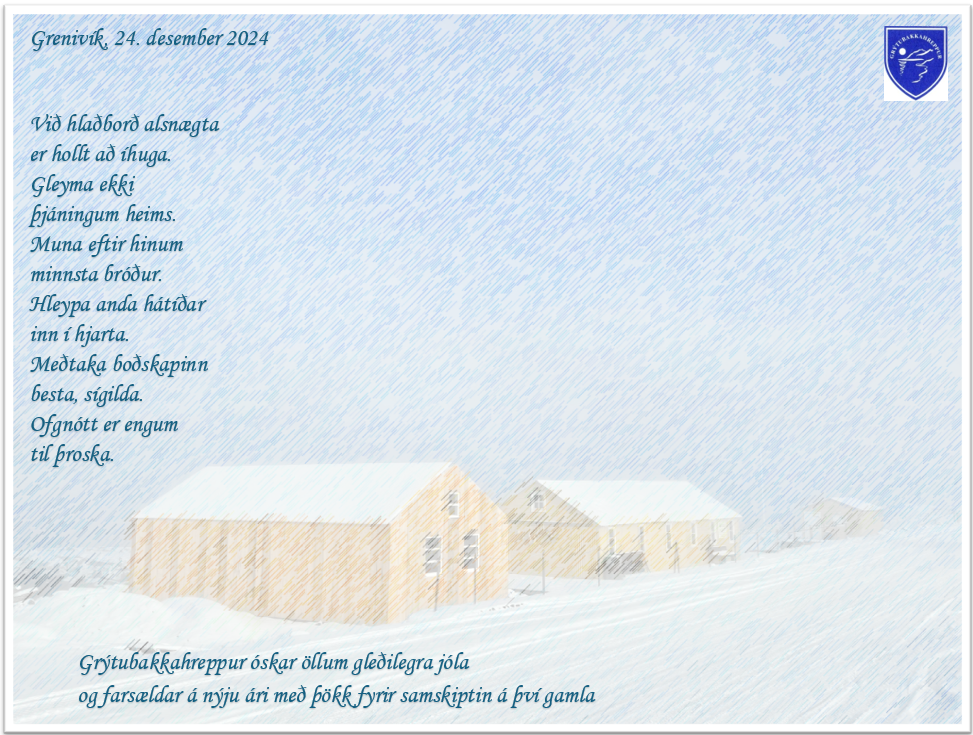 Grenivík, 24. desember 2024
GRÝTUBAKKAHREPPUR
Við hlaðborð alsnægta
er hollt að íhuga.
Gleyma ekki
þjáningum heims.
Muna eftir hinum
minnsta bróður.
Hleypa anda hátíðar
inn í hjarta.
Meðtaka boðskapinn
besta, sígilda.
Ofgnótt er engum
til þroska.
Grýtubakkahreppur óskar öllum gleðilegra jóla
og farsældar á nýju ári með þökk fyrir samskiptin á því gamla